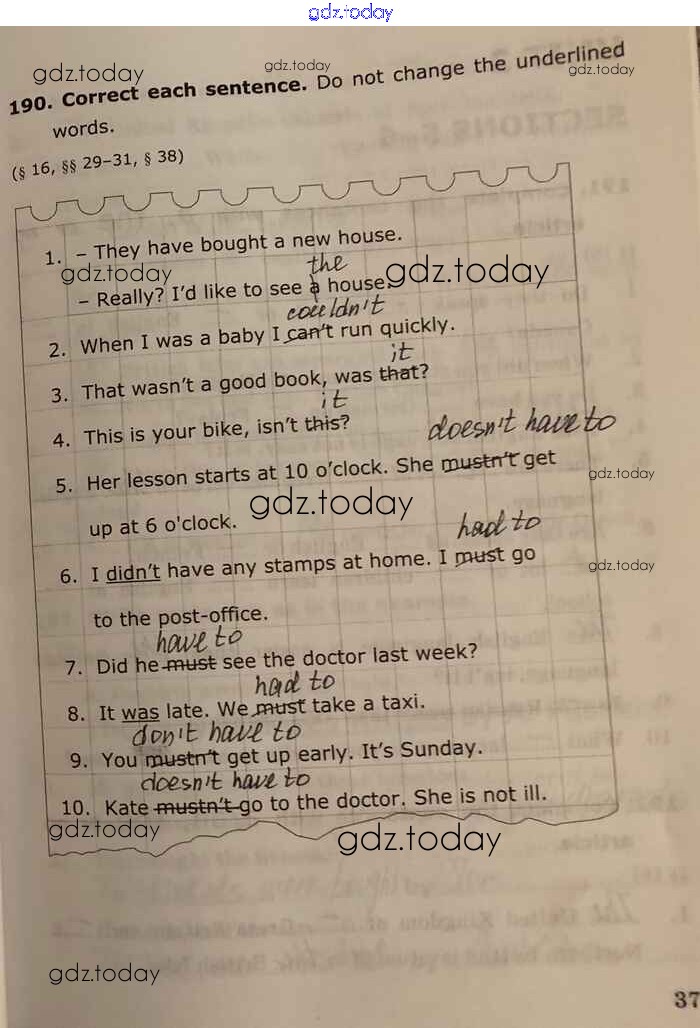 gdz.today
gdz.today
gdz.today
gdz.today
190. Correct each sentence. Do not change the underlined
words.
(§ 16, §§ 29–31, § 38)
1. – They have bought a new house.
gdz.today
the
gdz.today
– Really? I'd like to see a house.
couldn't
2. When I was a baby I can't run quickly.
it
3. That wasn't a good book, was that?
it
4. This is your bike, isn't this?
doesn't have to
5. Her lesson starts at 10 o'clock. She mustn't get
gdz.today
up at 6 o'clock.
gdz.today
had to
6. I didn't have any stamps at home. I must go
gdz.today
to the post-office.
have to
7. Did he must see the doctor last week?
had to
8. It was late. We must take a taxi.
don't have to
9. You mustn't get up early. It's Sunday.
doesn't have to
10. Kate mustn't go to the doctor. She is not ill.
gdz.today
gdz.today
gdz.today
37